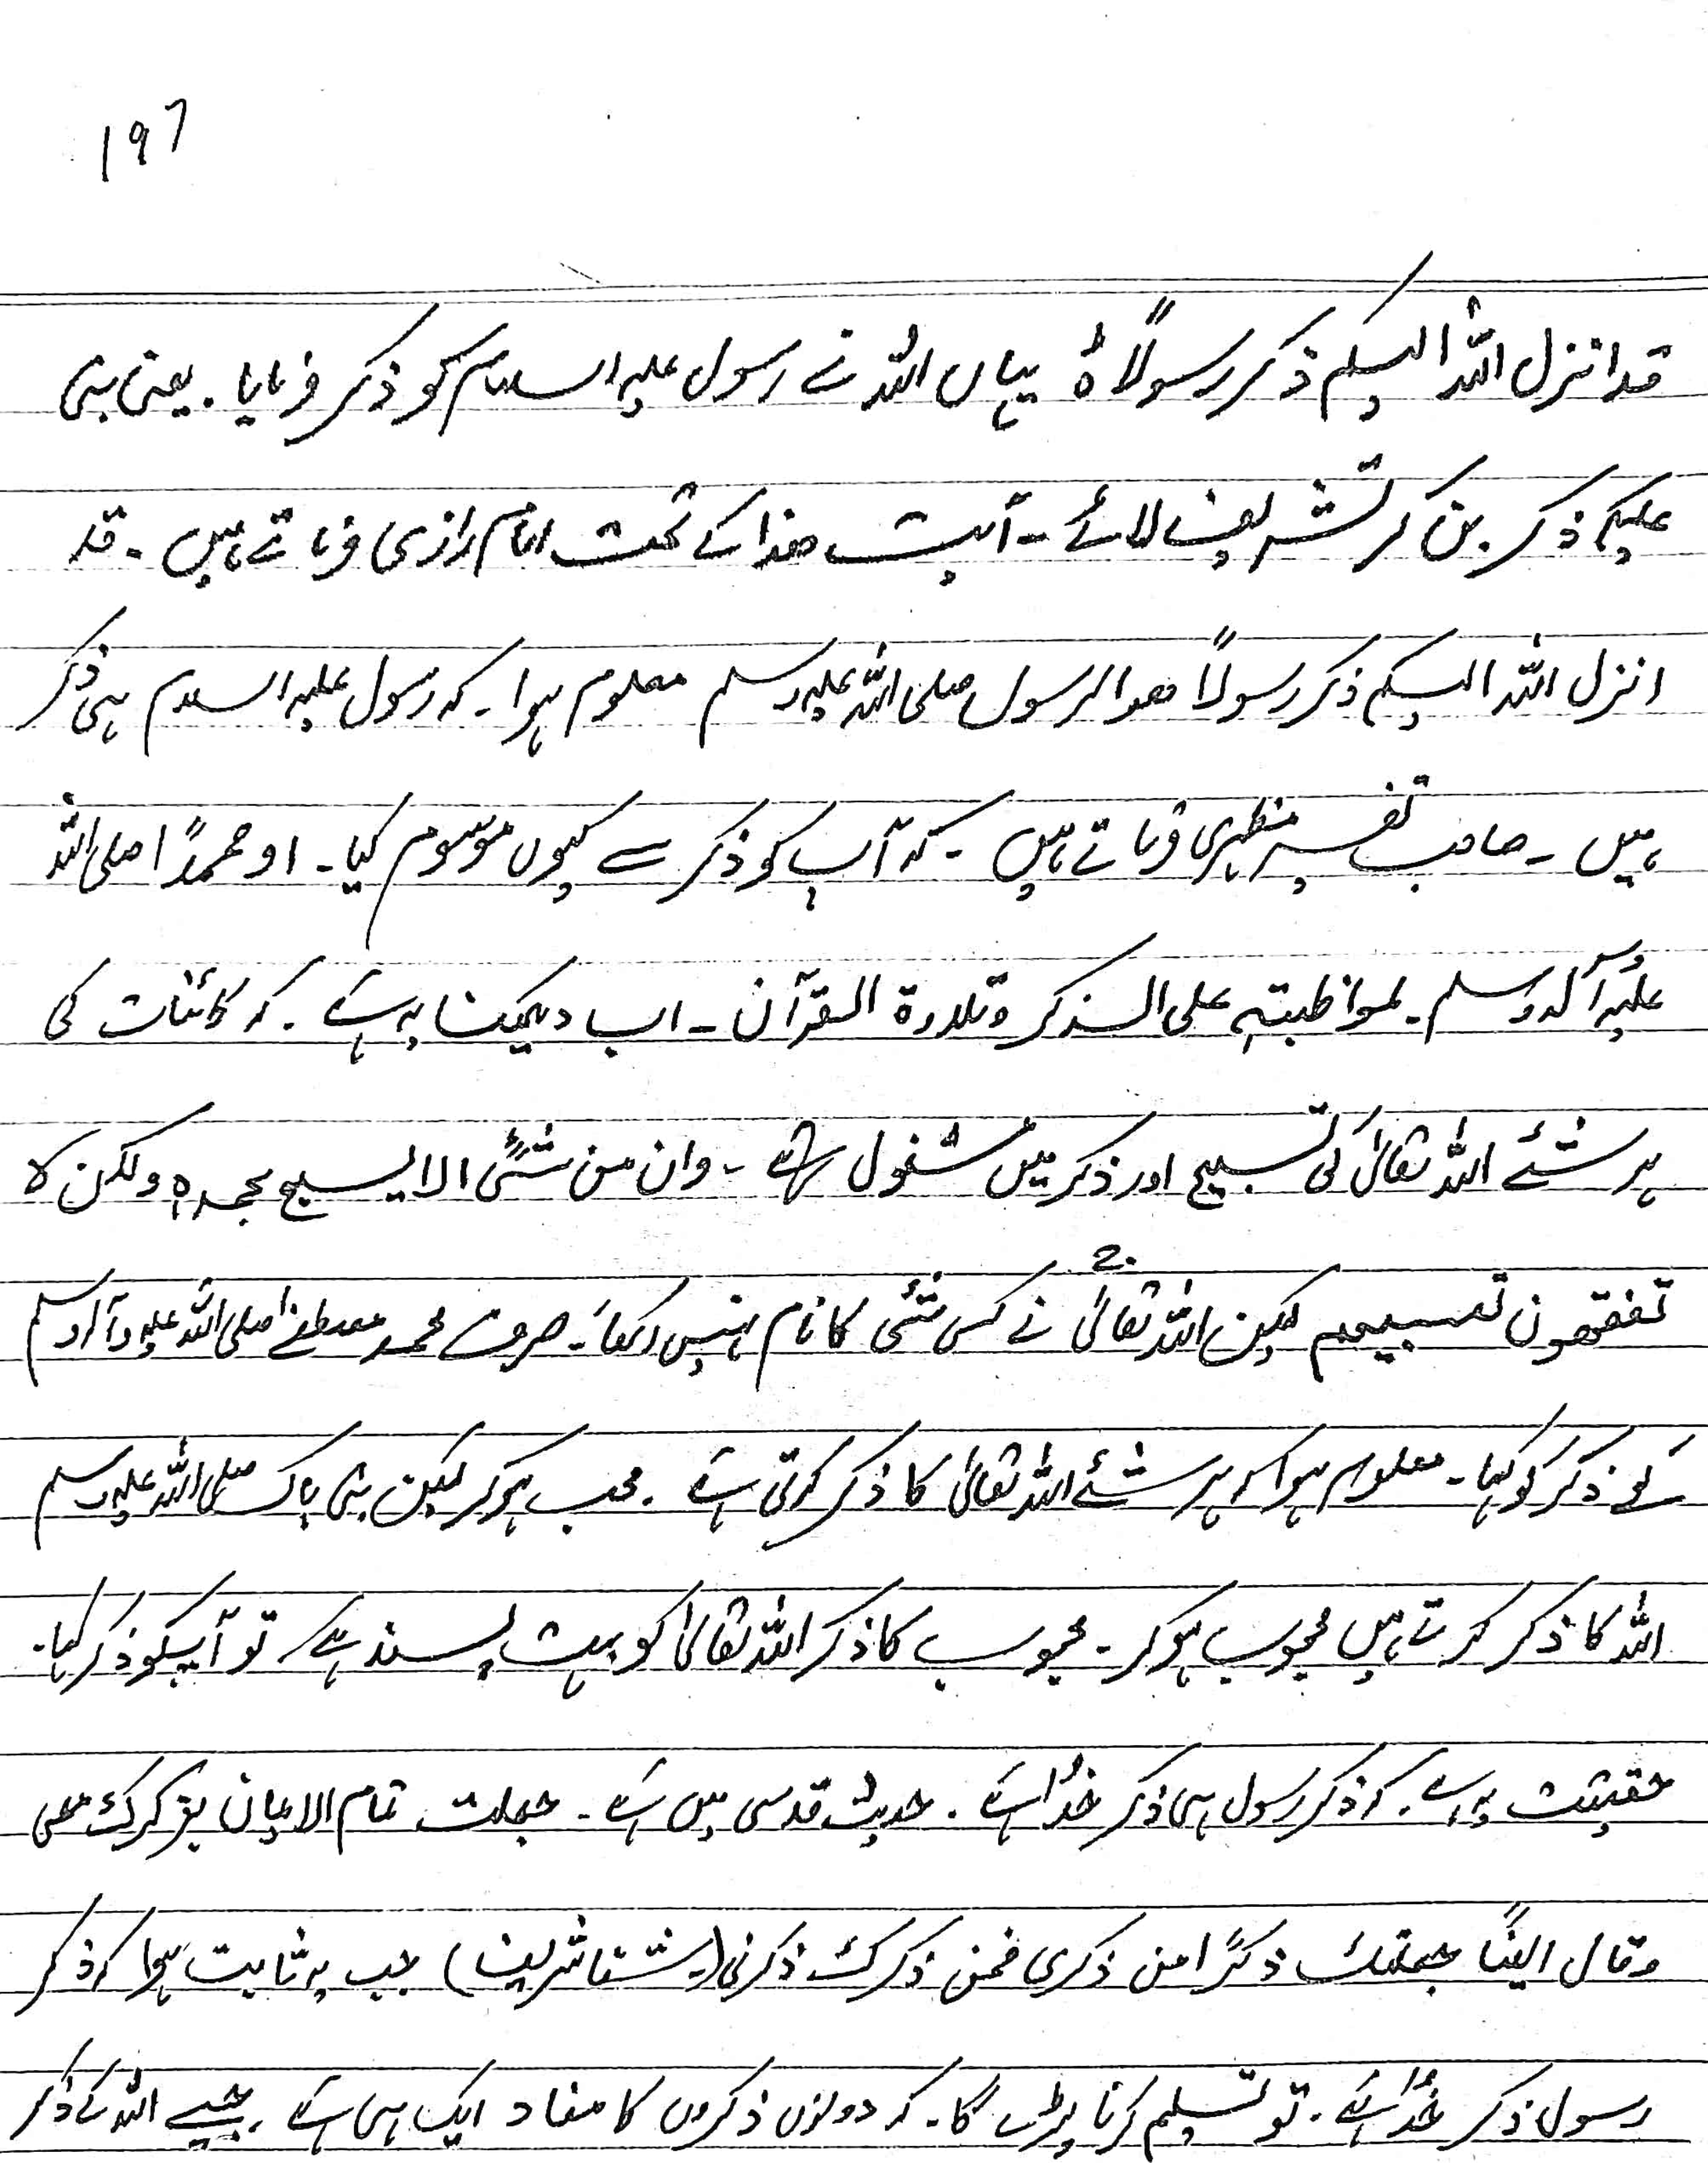 197
قد انزل اللہ الیکم ذکر رسولاً ہ یہاں اللہ نے رسول علیہ السلام کو ذکر فرمایا ۔ یعنی نبی
علیکم ذکر بن کر تشریف لائے ۔ آیت ھذا کے تحت امام رازی فرماتے ہیں ۔ قد
انزل اللہ الیکم ذکر رسولاً ھو الرسول صلی اللہ علیہ وسلم معلوم ہوا ۔ کہ رسول علیہ السلام ہی ذکر
ہیں ۔ صاحب تفسیر مظہری فرماتے ہیں ۔ کہ آپ کو ذکر سے کیوں موسوم کیا ۔ او محمداً صلی اللہ
علیہ وآلہ وسلم ۔ لمواظبتہ علی الذکر وتلاوۃ القرآن ۔ اب دیکھنا یہ ہے ۔ کہ کائنات کی
ہر شئے اللہ تعالیٰ کی تسبیح اور ذکر میں مشغول ہے ۔ وان من شئی الا یسبح بحمدہ ولکن لا
تفقھون تسبیحھم لیکن اللہ تعالیٰ نے کسی شئی کا نام نہیں رکھا ۔ صرف محمد مصطفےٰ صلی اللہ علیہ وآلہ وسلم
کے ذکر کو کہا ۔ معلوم ہوا کہ ہر شئے اللہ تعالیٰ کا ذکر کرتی ہے ۔ محب ہو کر لیکن نبی پاک صلی اللہ علیہ وسلم
اللہ کا ذکر کرتے ہیں محبوب ہو کر ۔ محبوب کا ذکر اللہ تعالیٰ کو بہت پسند ہے تو آپکو ذکر کہا ۔
حقیقت یہ ہے ۔ کہ ذکر رسول ہی ذکر خدا ہے ۔ حدیث قدسی میں ہے ۔ جعلت تمام الایمان بذکرک معی
وقال ایضاً جعلتک ذکراً من ذکری فمن ذکرک ذکرنی (شفا شریف) جب یہ ثابت ہوا کہ ذکر
رسول ذکر خدا ہے ۔ تو تسلیم کرنا پڑے گا ۔ کہ دونوں ذکروں کا مفاد ایک ہی ہے ۔ جیسے اللہ کے ذکر